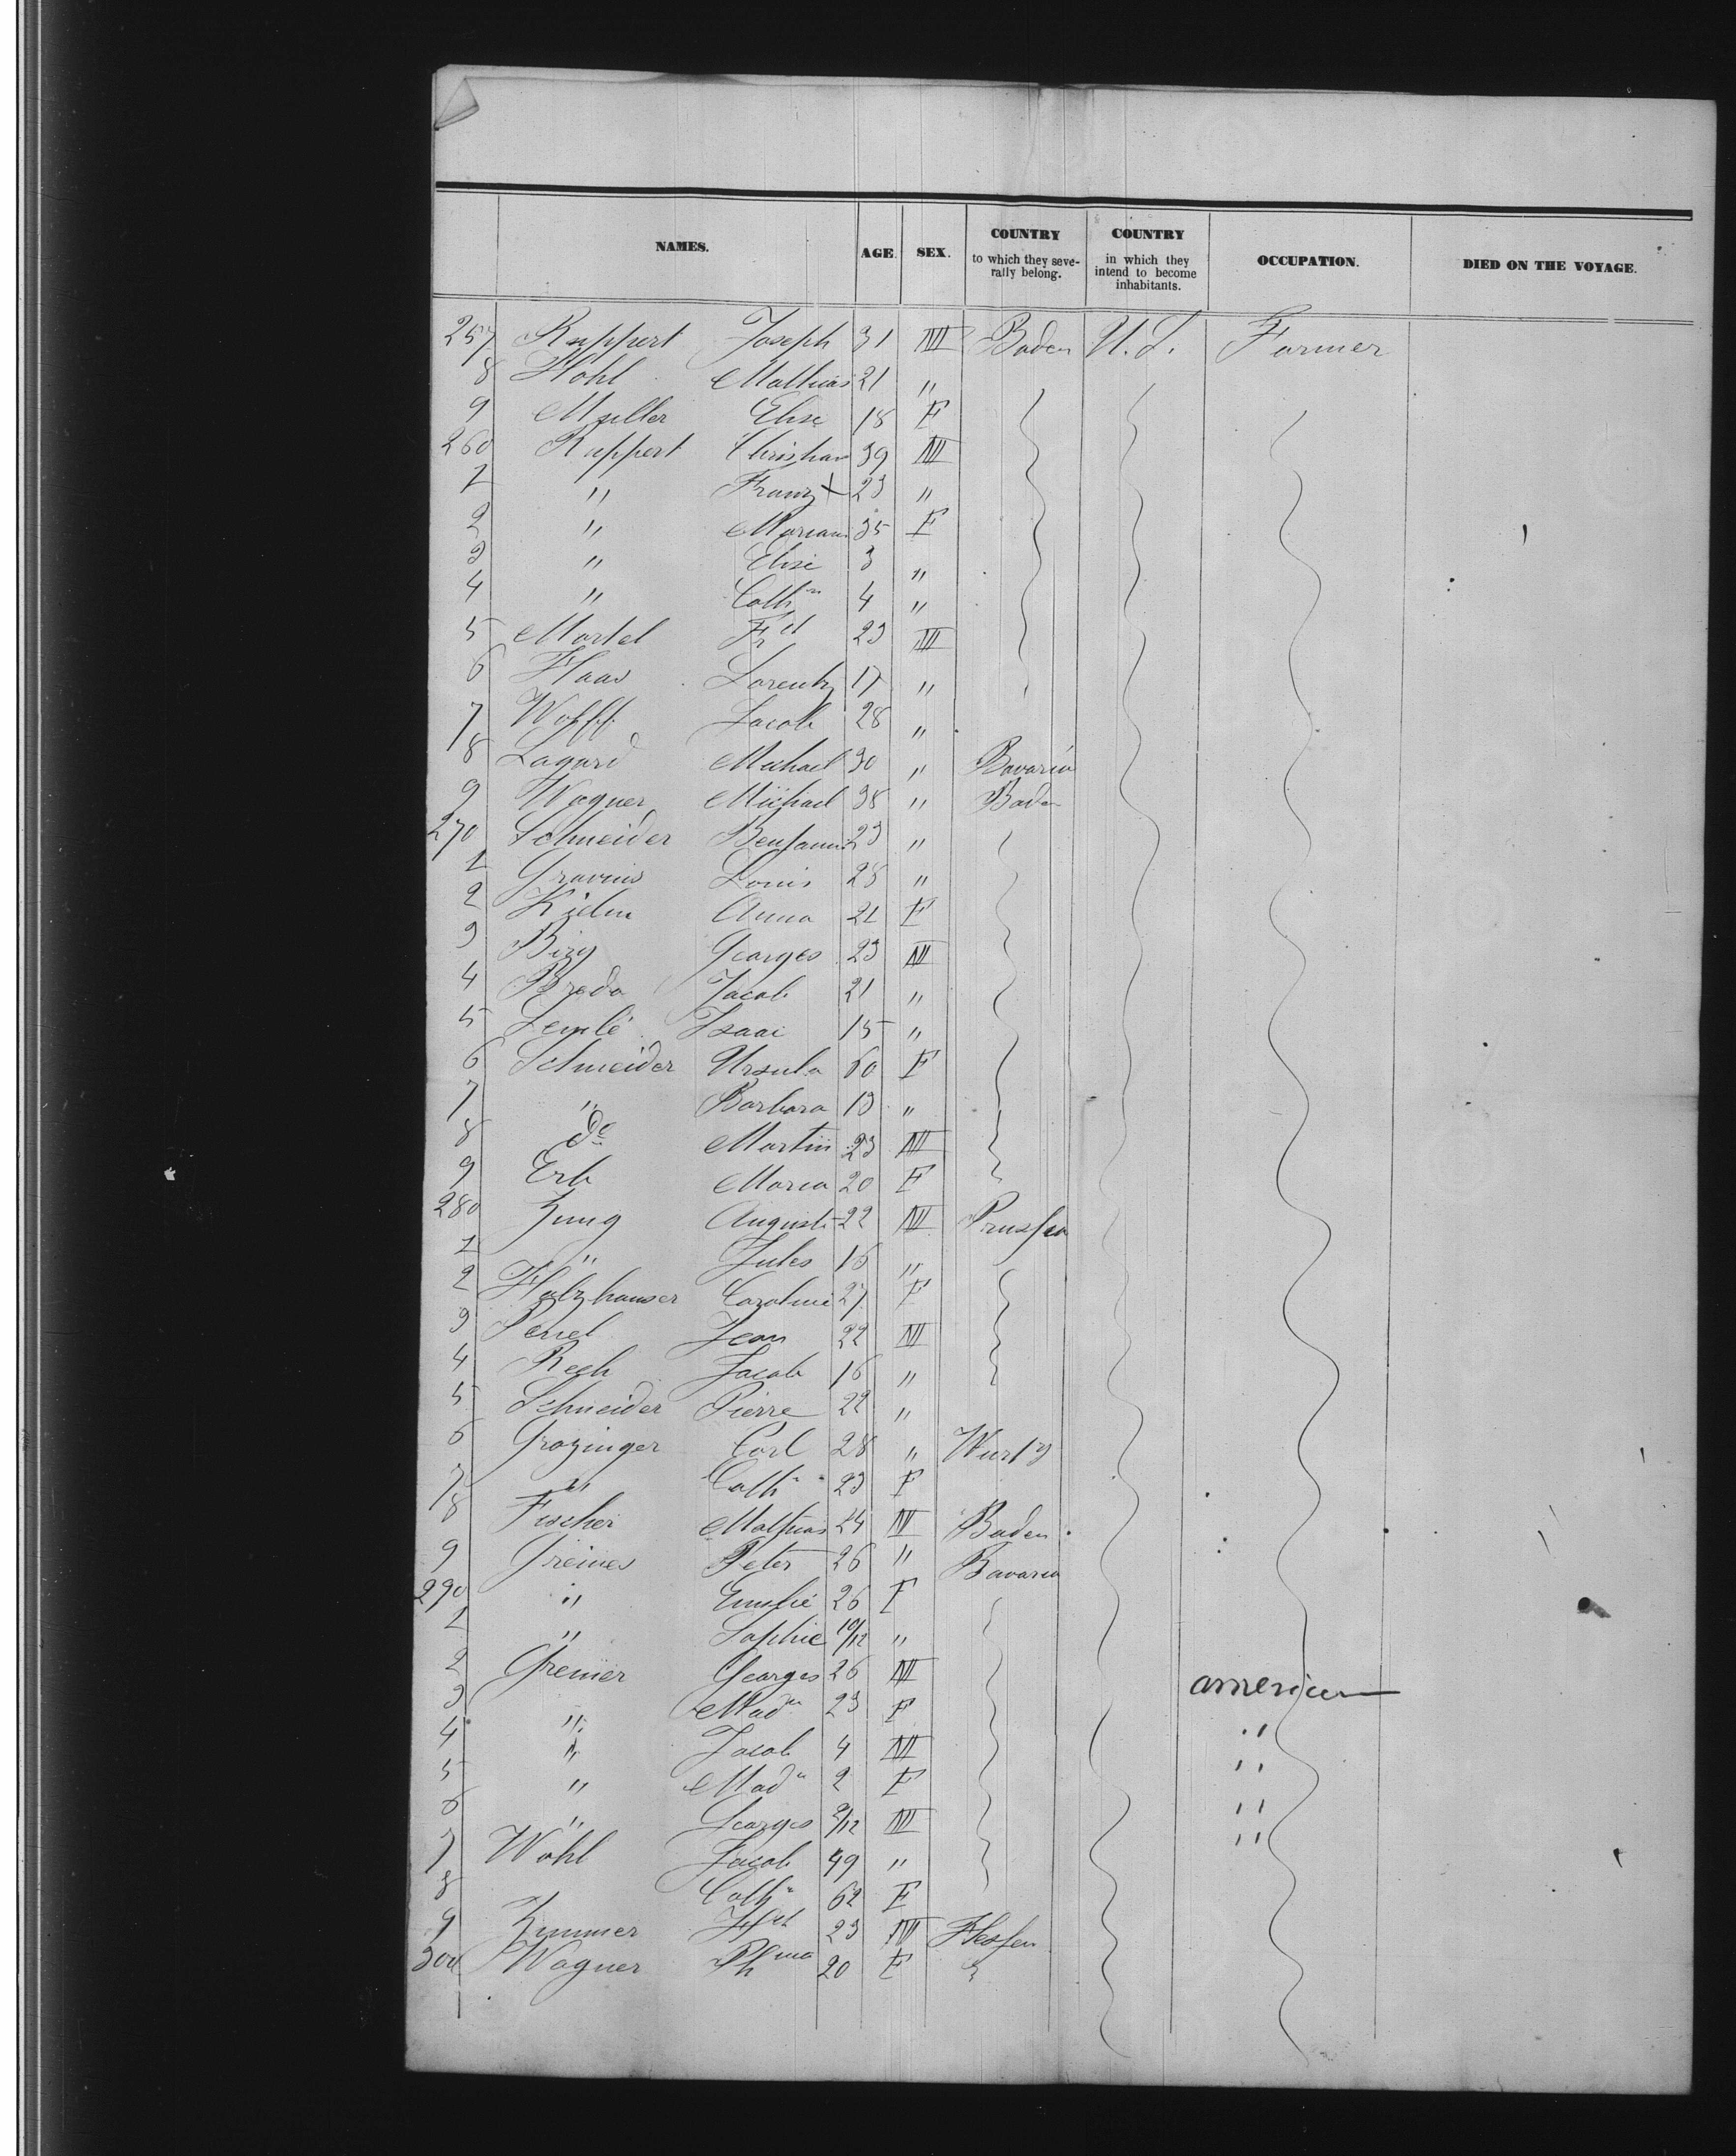 NAMES. AGE. SEX. COUNTRY to which they severally belong. COUNTRY in which they intend to become inhabitants. OCCUPATION. DIED ON THE VOYAGE.
257 Ruppert Joseph 31 M Baden U.S. Farmer
8 Hohl Mathias 21 "
9 Muller Elise 18 F
260 Ruppert Christian 39 M
1 " Franz X 23 "
2 " Mariana 35 F
3 " Elise 3 "
4 " Cathn 4 "
5 Martel Frd 23 M
6 Haas Lorentz 17 "
7 Wolff Jacob 28 "
8 Lagard Michael 30 " Bavaria
9 Wagner Michael 38 " Baden
270 Schneider Benjamin 23 "
1 Gravius Louis 28 "
2 Anna 21 F
3 Birg Georges 23 M
4 Breda Jacob 21 "
5 Isaac 15 "
6 Schneider Ursula 60 F
7 " Barbara 13 "
8 do Martin 23 M
9 Erb Maria 20 F
280 Jung August 22 M Prussia
1 " Jules 16 "
2 Holzhauser Caroline 27 F
3 Jean 22 M
4 Regh Jacob 16 "
5 Schneider Pierre 22 "
6 Grozinger Carl 28 " Wurtg
7 " Cathn 23 F
8 Fischer Mathias 24 M Baden
9 Greiner Peter 26 " Bavaria
290 " Emilie 26 F
1 " Sophie 10/12 "
2 Greiner Georges 26 M american
3 " Madn 23 F "
4 " Jacob 4 M "
5 " Madn 2 F "
6 " Georges 9/12 M "
7 Wohl Jacob 49 "
8 Cathn 62 F
9 Zimmer 23 M Hessen
300 Wagner Phma 20 F